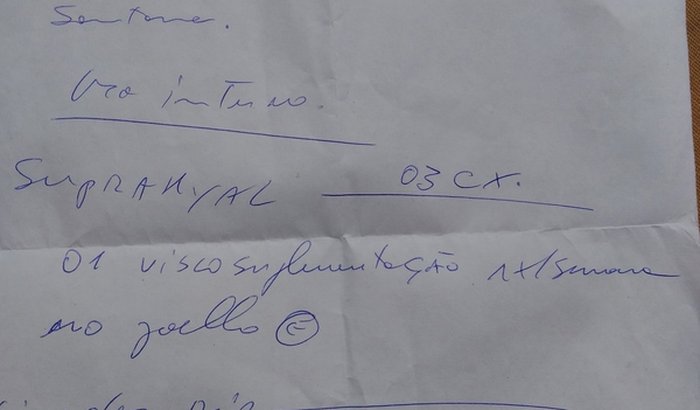 Santana.
Uso interno.
SUPRAHYAL 03 CX.
01 viscosuplementação 1x/semana
no joelho E